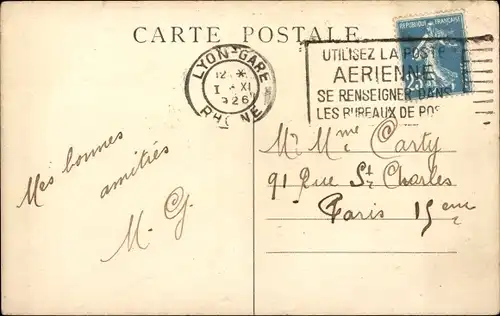 CARTE POSTALE
LYON-GARE
12 *
1 - XI
1926
RHONE
UTILISEZ LA POSTE
AERIENNE
SE RENSEIGNER DANS
LES BUREAUX DE POS
REPUBLIQUE FRANÇAISE
25
Mes bonnes
amitiés
M. G.
Mr Mme Carty
91 Rue St Charles
Paris 15eme